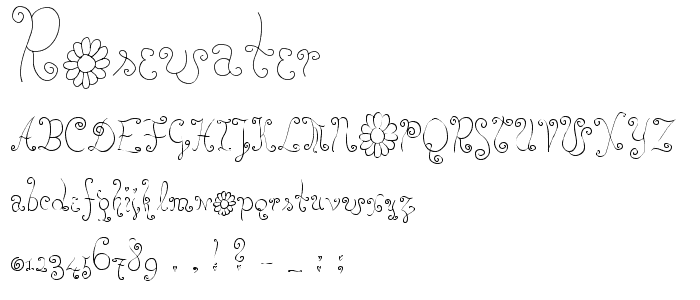 Rosewater
ABCDEFGHIJKLMNOPQRSTUVWXYZ
abcdefghijklmnopqrstuvwxyz
0123456789 . , ! ? - _ : ;